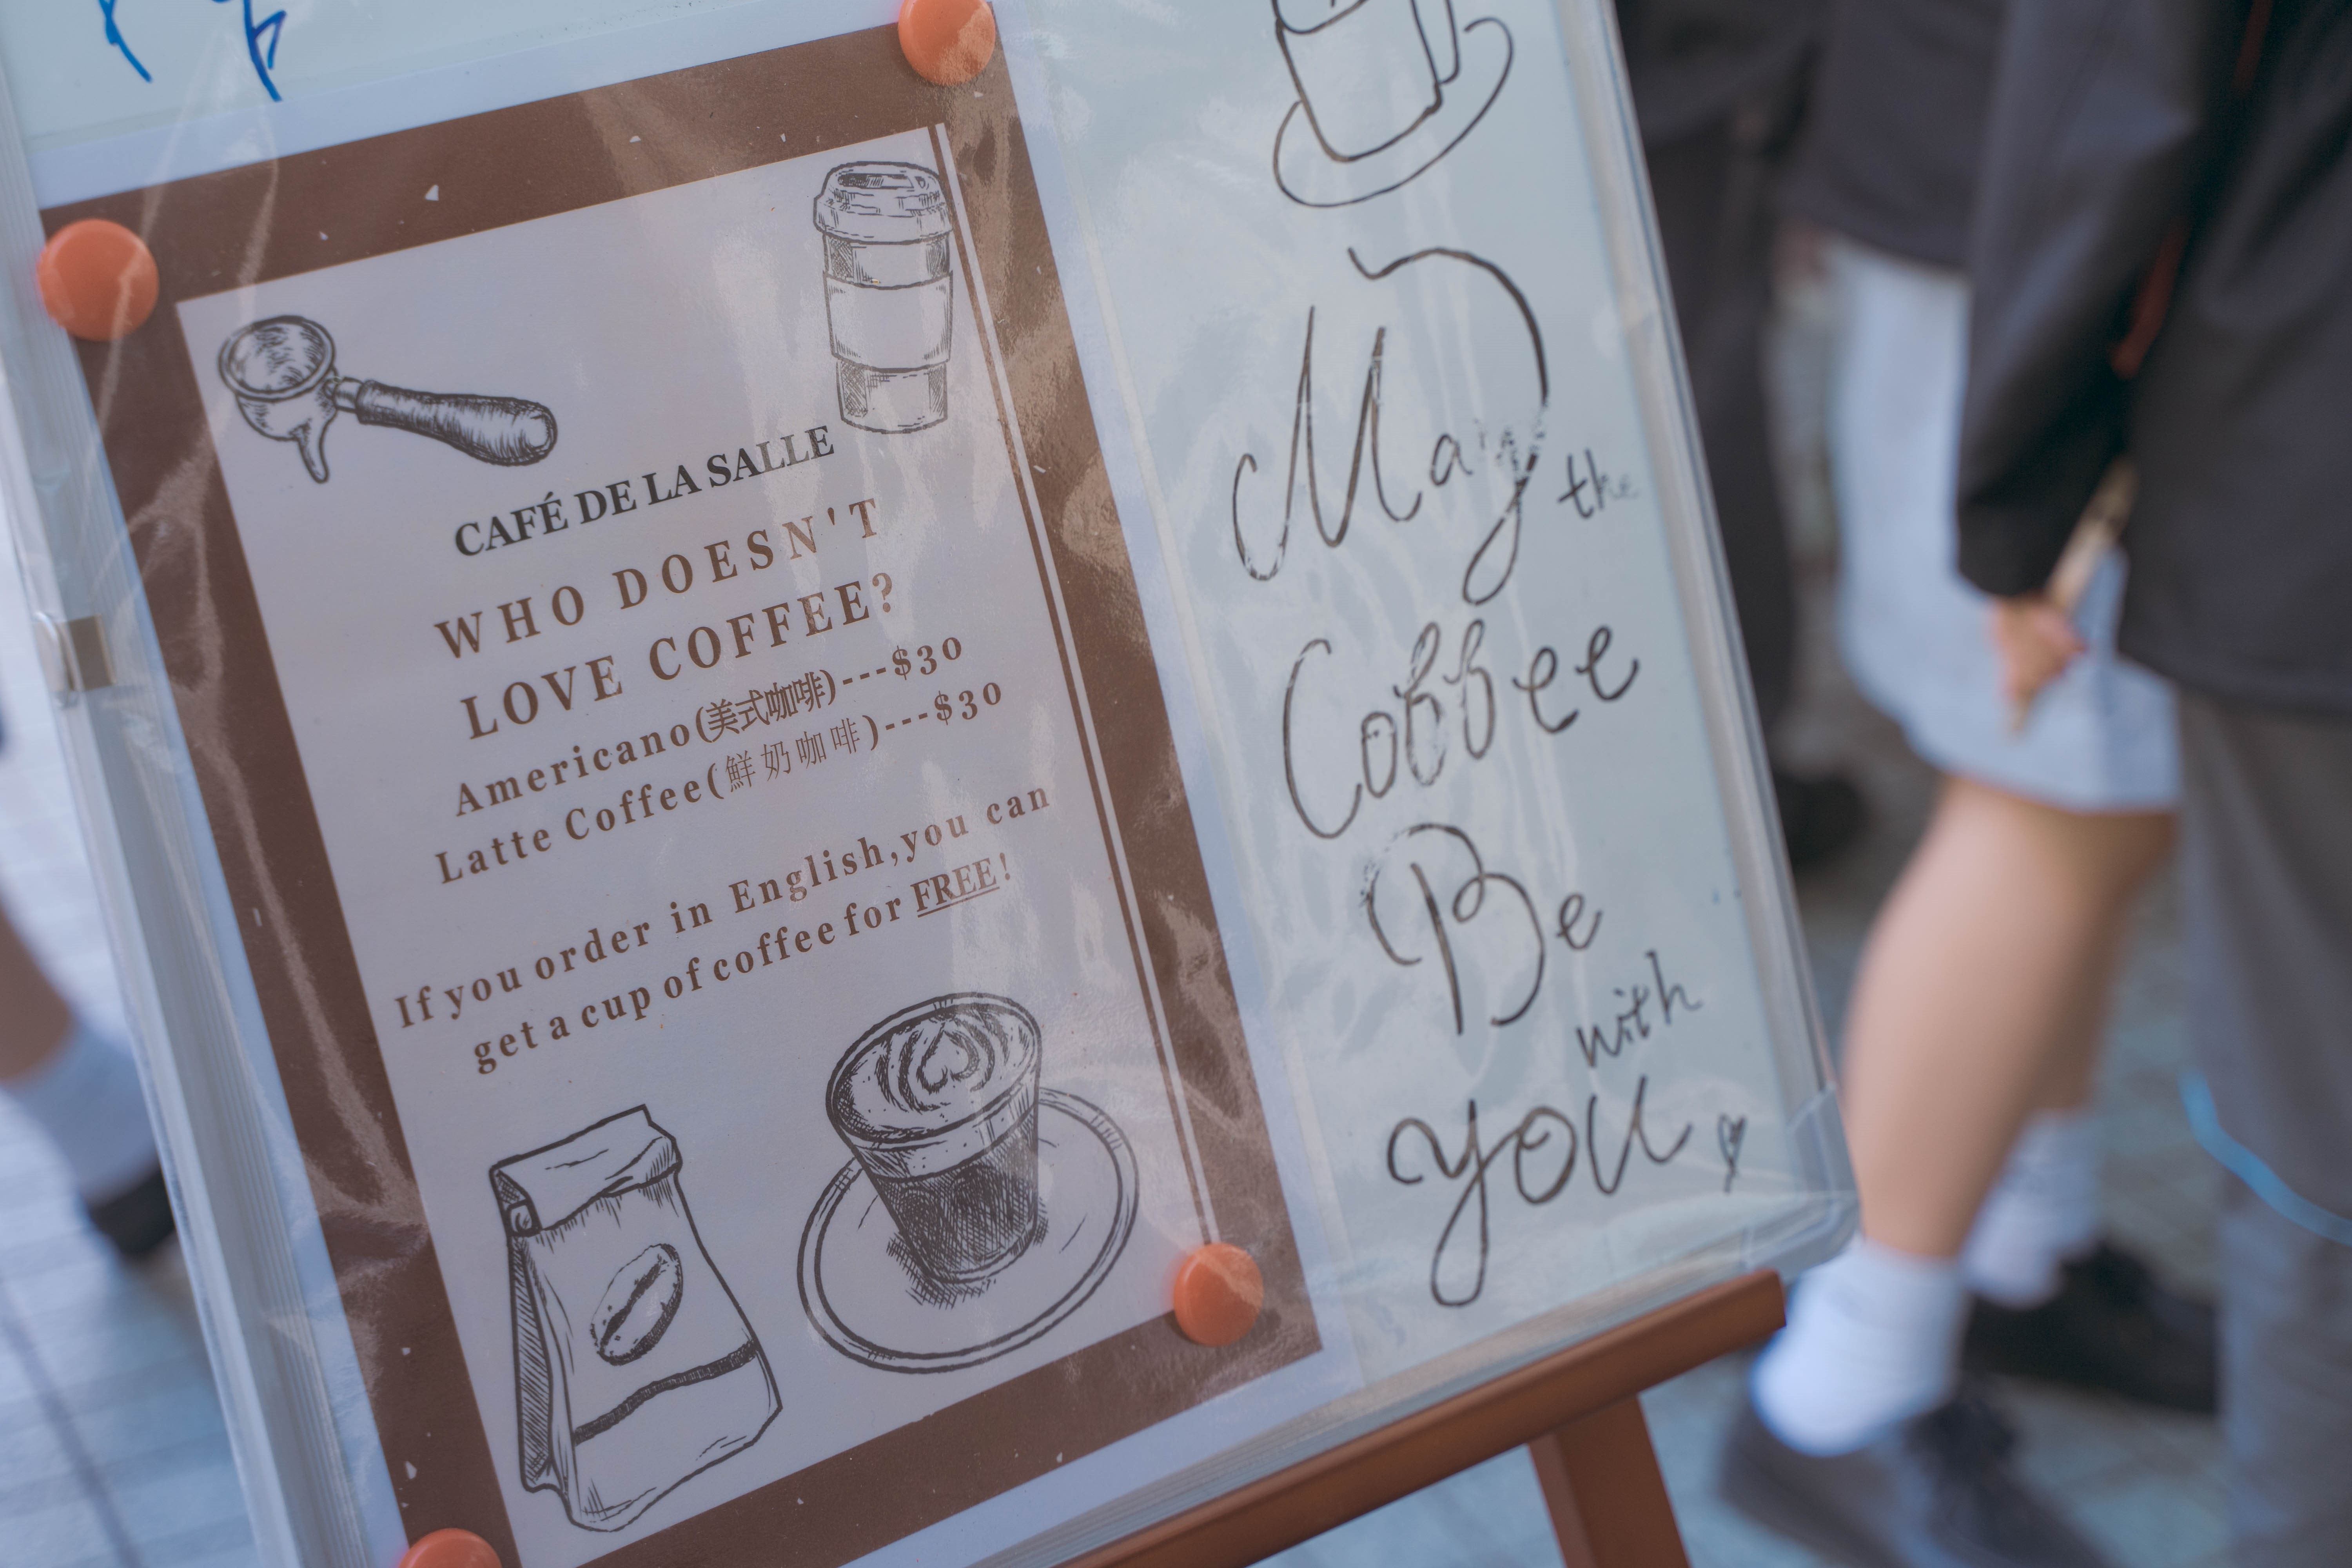 CAFÉ DE LA SALLE
WHO DOESN'T
LOVE COFFEE?
Americano(美式咖啡)---$30
Latte Coffee(鮮奶咖啡)---$30
If you order in English,you can
get a cup of coffee for FREE!
May the
Coffee
Be
with
you